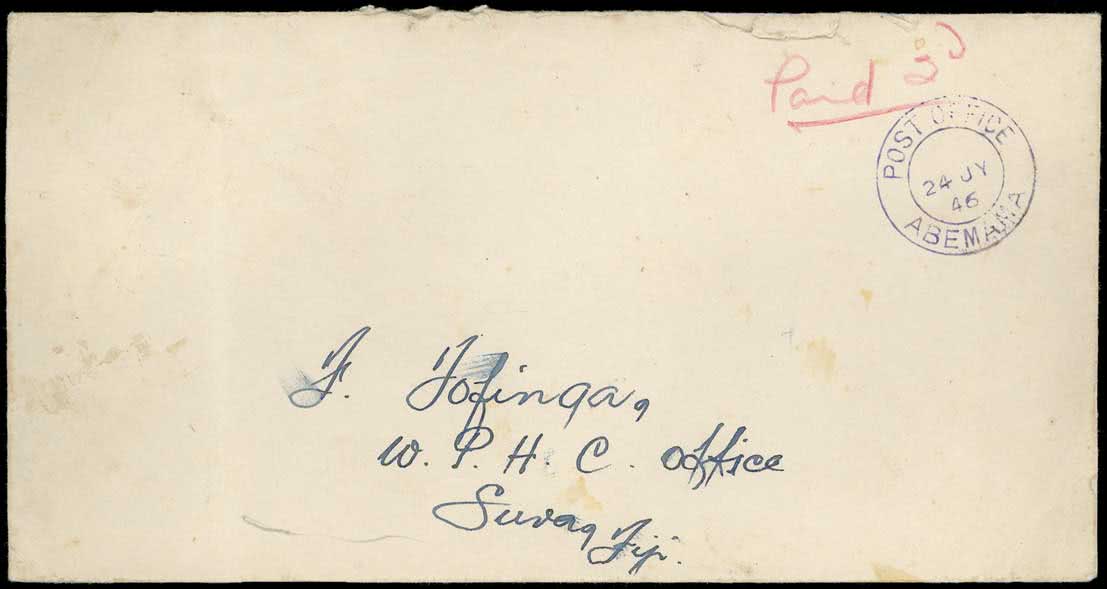 Paid 2D
POST OFFICE
24 JY
46
ABEMAMA
F. Tofinga,
W. P. H. C. Office
Suva, Fiji.